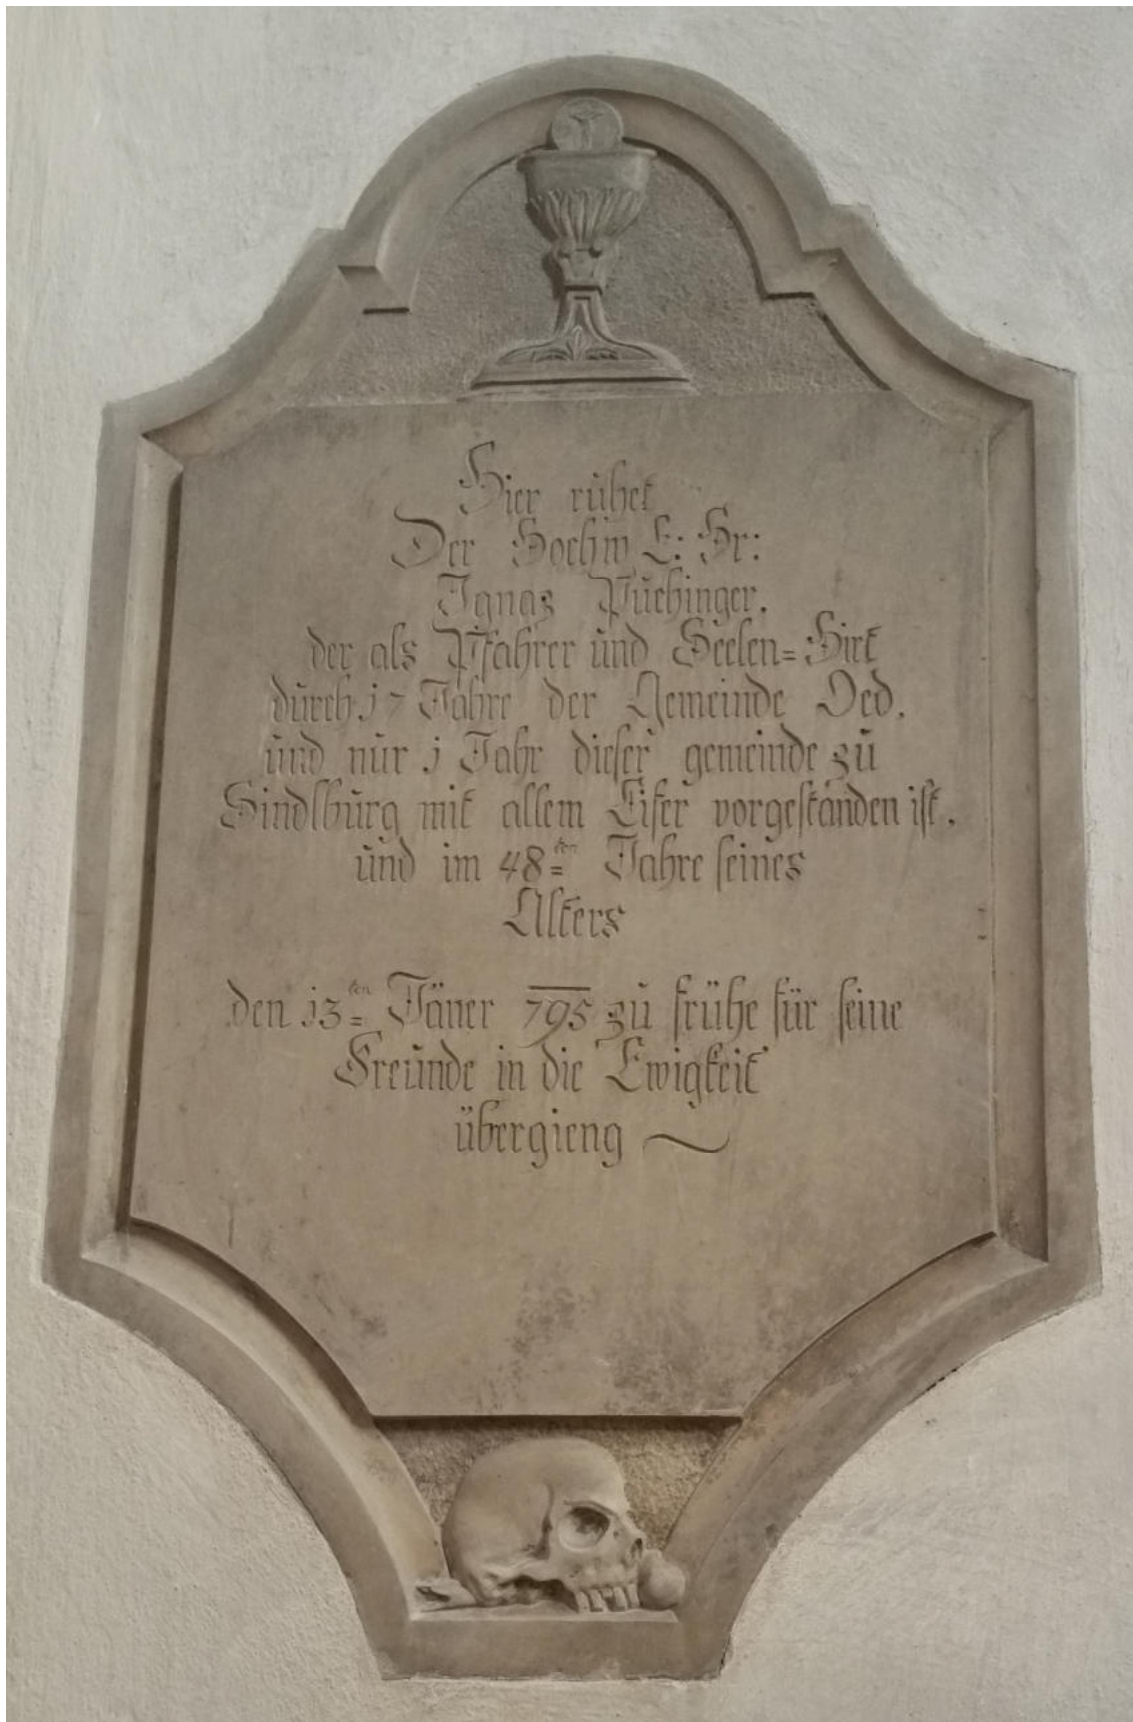 Hier ruhet
Der Hochw E: Hr:
Ignaz Puchinger.
der als Pfahrer und Seelen=Hirt
durch 17 Jahre der Gemeinde Oed,
und nur 1 Jahr dieser gemeinde zu
Sindlburg mit allem Eifer vorgestanden ist.
und im 48ten Jahre seines
Alters
den 13ten Jäner 795 zu frühe für seine
Freunde in die Ewigkeit
übergieng